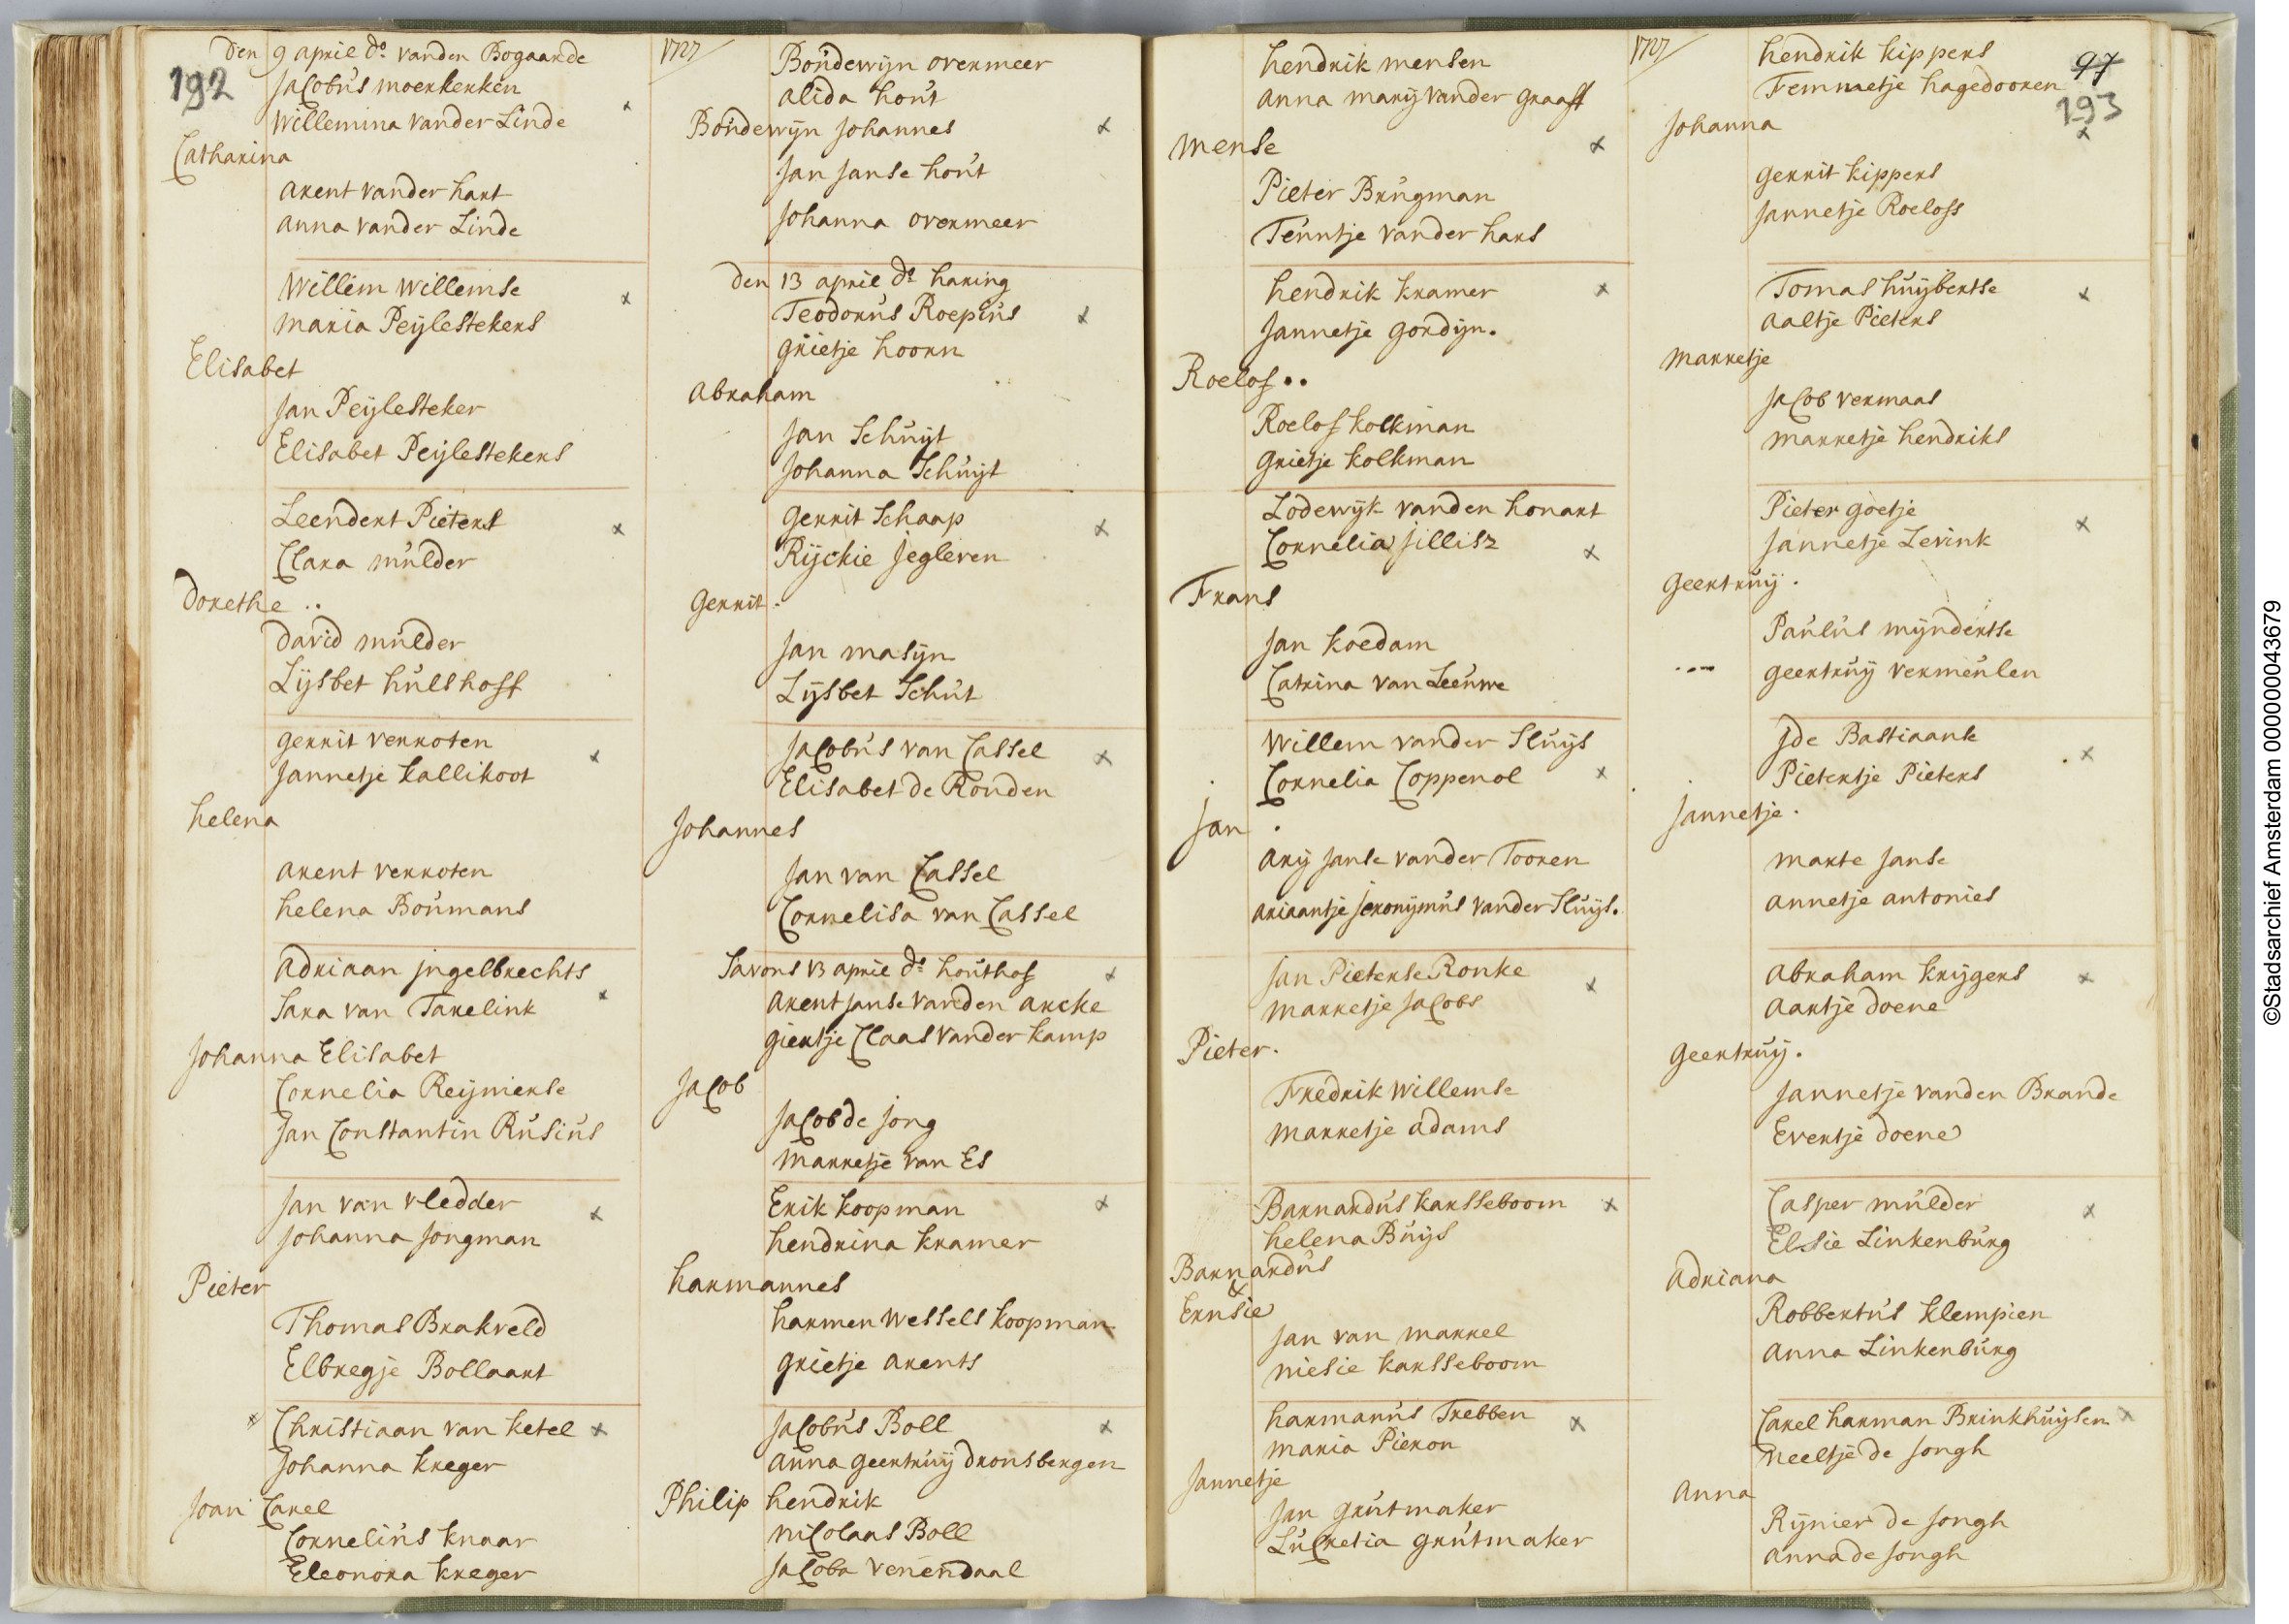 192
1727
den 9 aprie do vanden Bogaarde
Jacobus moerkerken
Willemina vander Linde
Catharina
arent vander hart
anna vander Linde
Willem Willemse
maria Peylestekers
Elisabet
Jan Peylesteker
Elisabet Peylestekers
Leendert Pieters
Clara mulder
Dorethe ..
David mulder
Lysbet hulshoff
gerrit verroten
Jannetje kallikoot
helena
arent verroten
helena Boumans
Adriaan Jngelbrechts
Sara van Tarelink
Johanna Elisabet
Cornelia Reynierse
Jan Constantin Rusius
Jan van vledder
Johanna Jongman
Pieter
Thomas Brakveld
Elbregje Bollaart
Christiaan van ketel
Johanna kreger
Joan Carel
Cornelius knaar
Eleonora kreger
Boudewyn overmeer
alida hout
Boudewyn Johannes
Jan Janse hout
Johanna overmeer
den 13 aprie ds haring
Teodorus Roepius
grietje hoorn
Abraham
Jan Schuyt
Johanna Schuyt
gerrit Schaap
Ryckie Jegleren
Gerrit.
Jan masyn
Lysbet Schut
Jacobus van Cassel
Elisabet de Ronden
Johannes
Jan van Cassel
Cornelisa van Cassel
Savons 13 aprie ds houthof
arent Janse vanden arcke
giertje Claas vander kamp
Jacob
Jacob de Jong
marretje van Es
Erik koopman
hendrina kramer
harmannes
harmen wessels koopman
grietje arents
Jacobus Boll
anna geertruy dronsbergen
Philip hendrik
nicolaas Boll
Jacoba venendaal
97
193
1727
hendrik mensen
anna mary vander graaff
mense
Pieter Brugman
Teuntje vander hars
hendrik kramer
Jannetje gordyn.
Roelof ..
Roelof kolkman
grietje kolkman
Lodewyk vanden honart
Cornelia Jillisz
Frans
Jan koedam
Catrina van Leeuwe
Willem vander Sluys
Cornelia Coppenol
Jan .
ary Janse vander Tooren
ariaantje Jeronymus vander Sluys.
Jan Pieterse Ronke
marretje Jacobs
Pieter.
Fredrik Willemse
marretje adams
Barnardus karsseboom
helena Buys
Barnardus
&
Ernsie
Jan van markel
niesie karsseboom
harmanus Trebben
maria Pieron
Jannetje
Jan grutmaker
Lucretia grutmaker
hendrik kippers
Femmetje hagedooren
Johanna
gerrit kippers
Jannetje Roelofs
Tomas huybertse
aaltje Pieters
marretje
Jacob vermaas
marretje hendriks
Pieter goetje
Jannetje Levink
geertruy .
Paulus myndertse
geertruy vermeulen
Jde Bastiaanse
Pietertje Pieters
Jannetje.
marte Janse
annetje antonies
Abraham krygers
aartje doene
geertruy.
Jannetje vanden Brande
Evertje doene
Casper mulder
Elsie Linkenburg
Adriana
Robbertus klempien
anna Linkenburg
Carel harman Brinkhuysen
neeltje de Jongh
anna
Rynier de Jongh
anna de Jongh
©Stadsarchief Amsterdam 000000043679